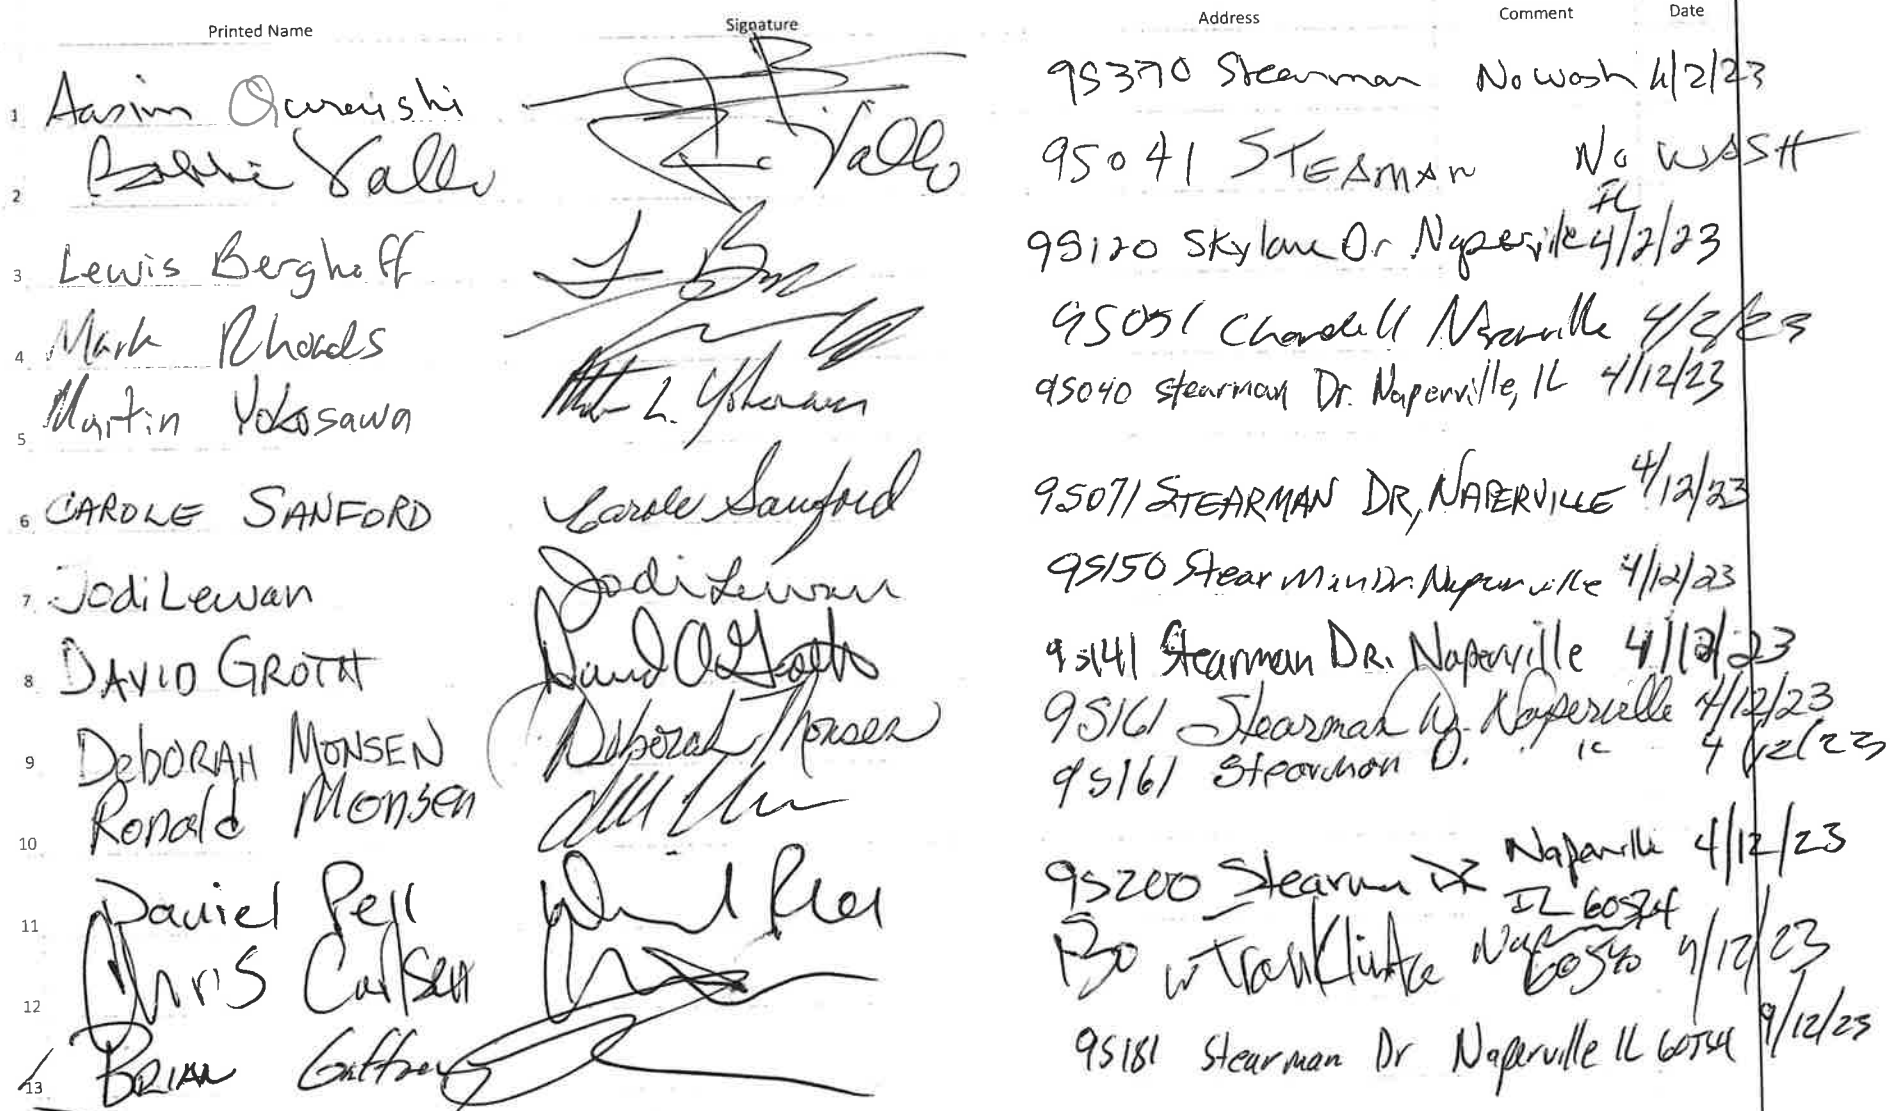 Printed Name Signature Address Comment Date
1 Aasim Quraishi 9S370 Stearman No wash 4/2/23
2 Bobbie Vallo Vallo 9S041 STEARMAN No WASH
IL
3 Lewis Berghoff L B 9S120 Skylane Dr Naperville 4/2/23
4 Mark Rhoads 9S051 Chandell Naperville 4/2/23
5 Martin Yokosawa L. Yokosawa 9S040 Stearman Dr. Naperville, IL 4/12/23
6 CAROLE SANFORD Carole Sanford 9S071 STEARMAN DR, NAPERVILLE 4/12/23
7 Jodi Lewan Jodi Lewan 9S150 Stearman Dr. Naperville 4/12/23
8 DAVID GROTH David A Groth 9S141 Stearman DR. Naperville 4/12/23
9 DeBORAH MONSEN Deborah Monsen 9S161 Stearman Dr. Naperville 4/12/23
10 Ronald Monsen 9S161 Stearman D. IL 4/12/23
11 Daniel Pell 9S200 Stearman Dr Naperville 4/12/23
IL 60564
12 Chris Carlsen W Franklin Ave Nap 4/12/23
60540
13 BRIAN Gaffney 9S181 Stearman Dr Naperville IL 60564 4/12/23